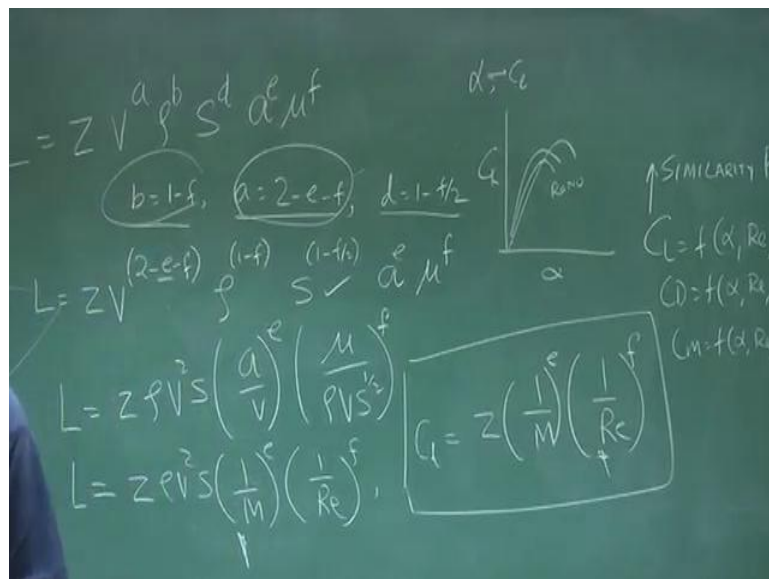 L = Z V^a ρ^b S^d a^e μ^f
b = 1-f, a = 2-e-f, d = 1-f/2
L = Z V^(2-e-f) ρ^(1-f) S^(1-f/2) a^e μ^f
L = Z ρV²S (a/V)^e (μ/ρVS^1/2)^f
L = Z ρV²S (1/M)^e (1/Re)^f.
C_L = Z (1/M)^e (1/Re)^f
α, C_L
C_L
α
SIMILARITY
C_L = f(α, Re,
CD = f(α, Re,
CM = f(α, Re